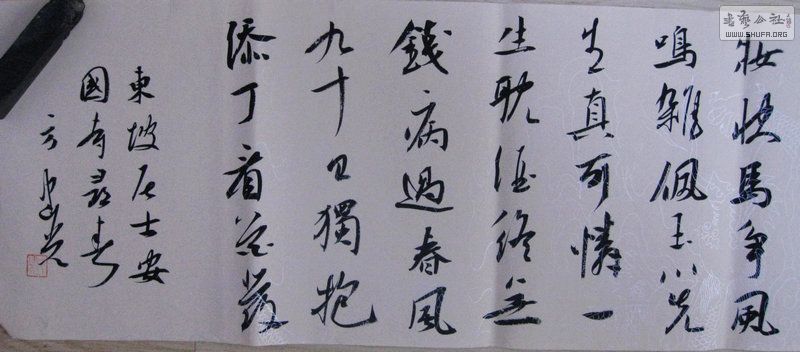 妝快馬爭風
鳴雜佩玉川先
生真可憐一
生耽酒終無
錢病過春風
九十日獨抱
添丁看花發
東坡居士安
國寺尋春
方
書藝公社
WWW.SHUFA.ORG